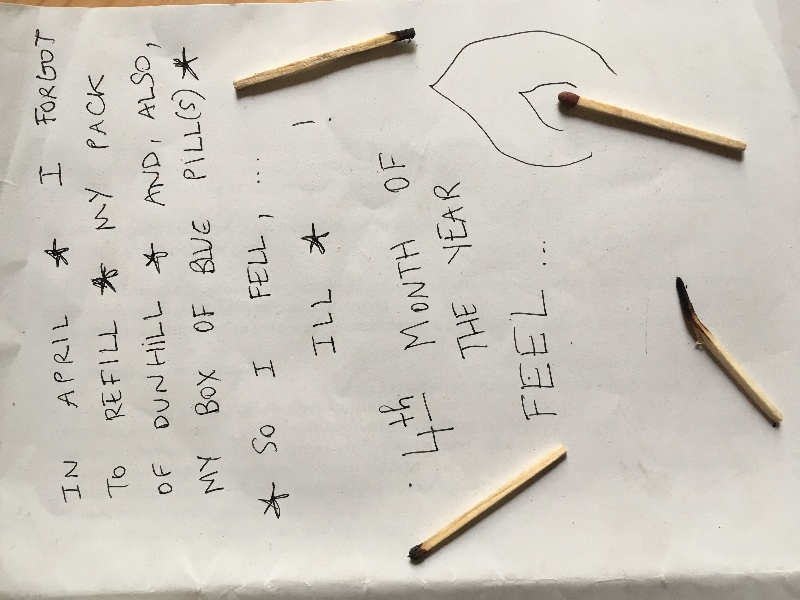 IN APRIL ★ I FORGOT
TO REFILL ★ MY PACK
OF DUNHILL ★ AND, ALSO,
MY BOX OF BLUE PILL(S) ★
★ SO I FELL, ... !
ILL ★
. 4th MONTH OF
THE YEAR
FEEL ...